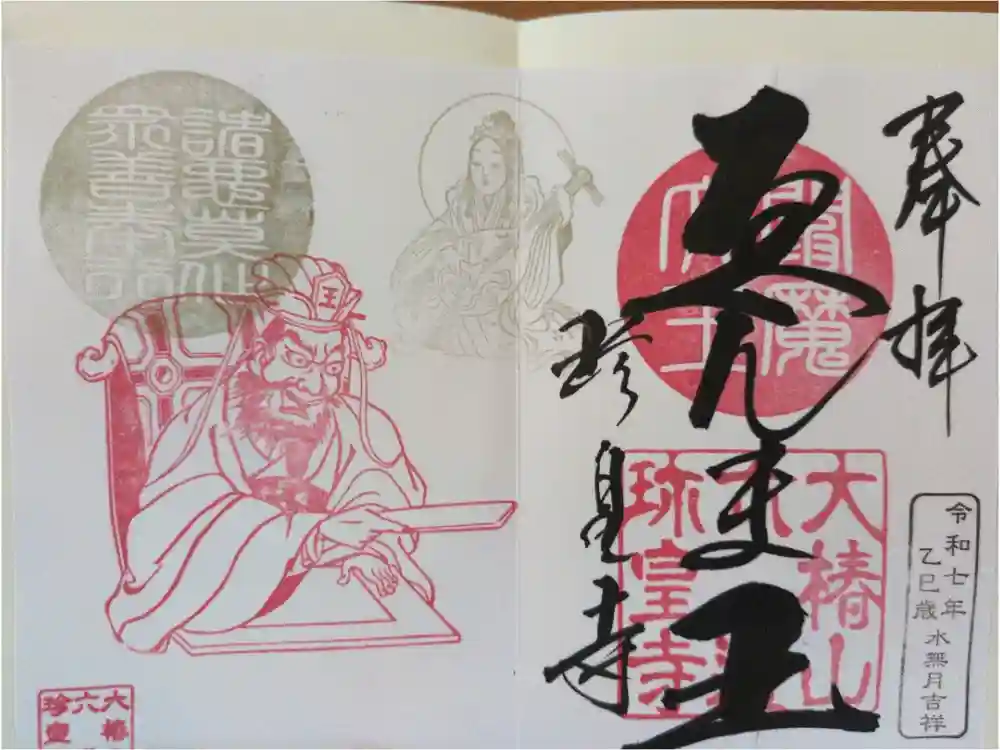 奉拝
閻魔
大王
ゑんま王
珍皇寺
大椿山
珎皇寺
令和七年
乙巳歳
水無月吉祥
諸悪莫作
衆善奉行
王
大椿
六
珍皇